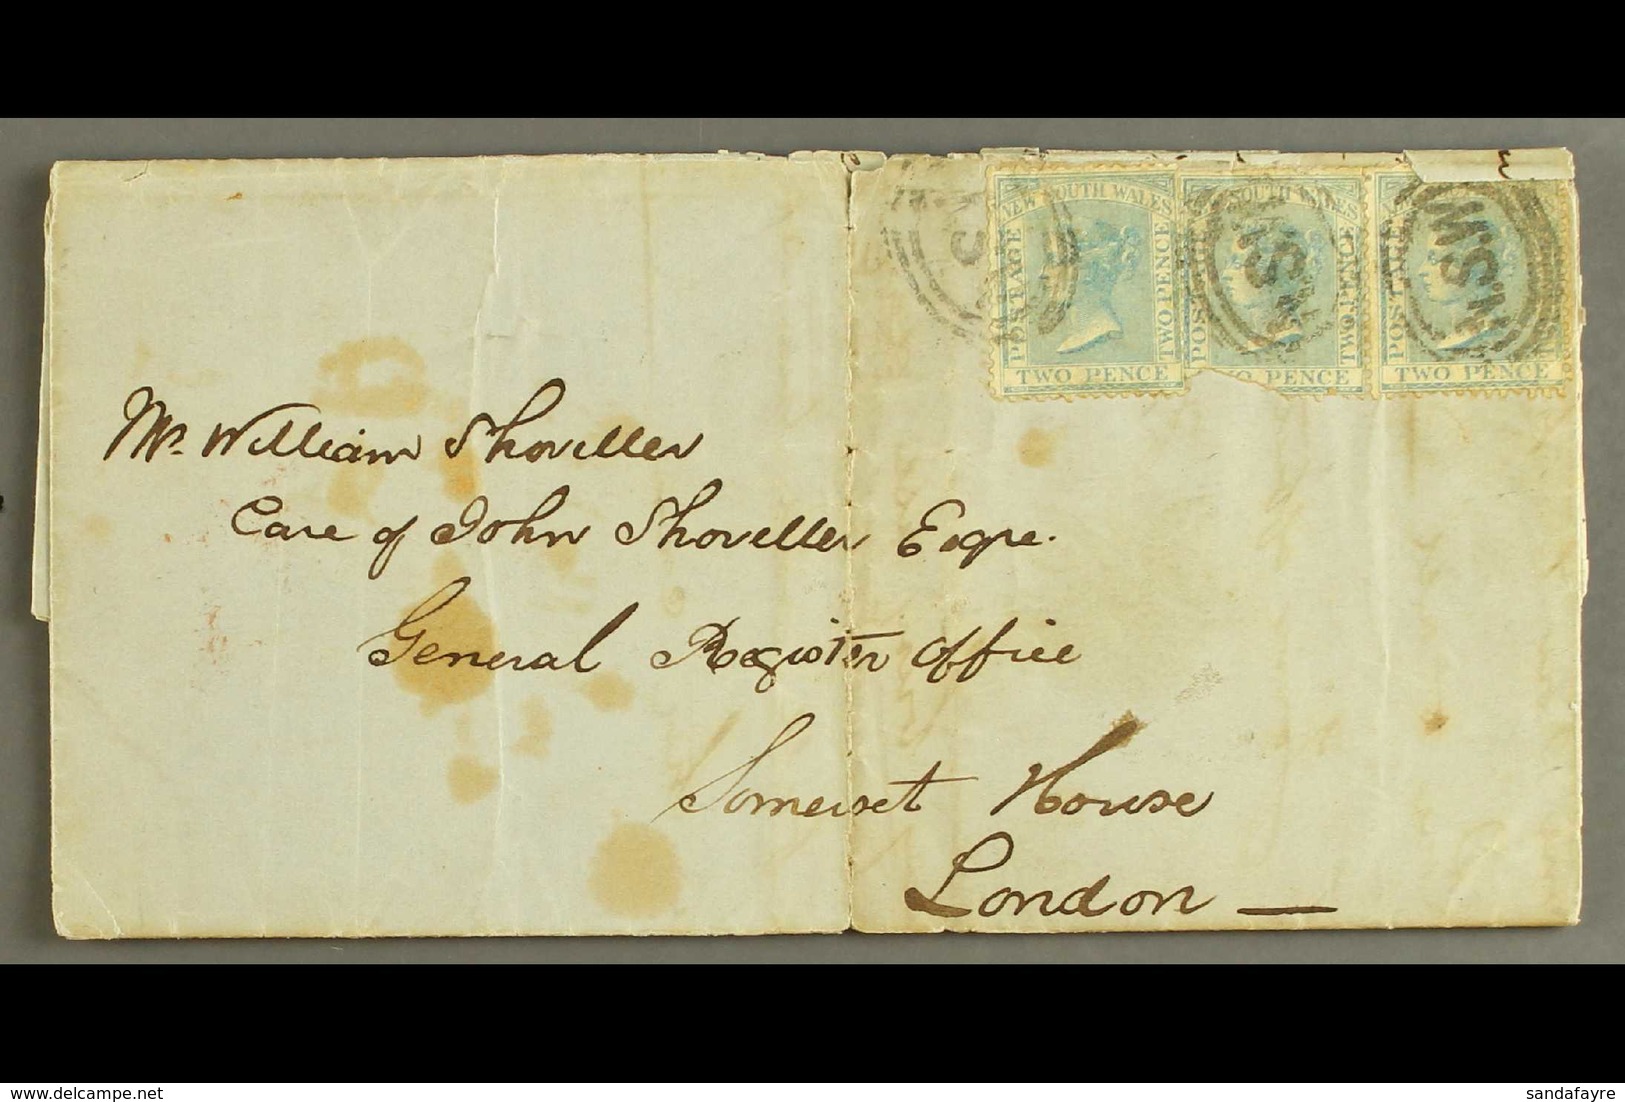 NEW SOUTH WALES
POSTAGE
TWO PENCE
TWO PENCE
SOUTH WALES
TWO PENCE
PENCE
TWO PENCE
NSW
NSW
Mr. William Shoveller
Care of John Shoveller Esqre.
General Register Office
Somerset House
London —
delcampe.net
sandafayre